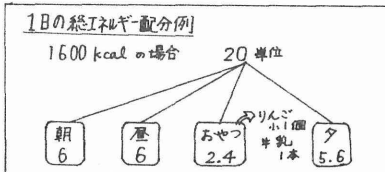 1日の総エネルギー配分例
1600 kcal の場合
20 単位
朝
6
昼
6
おやつ
2.4
りんご
小1個
牛乳
1本
夕
5.6